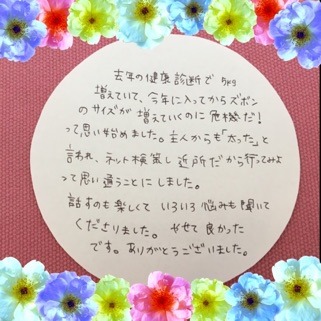 去年の健康診断で 5kg
増えていて、今年に入ってからズボン
のサイズが増えていくのに危機だ！
って思い始めました。主人からも「太った」と
言われ、ネット検索し近所だから行ってみよ
って思い通うことにしました。
話すのも楽しくていろいろ悩みも聞いて
くださりました。やせて良かった
です。ありがとうございました。